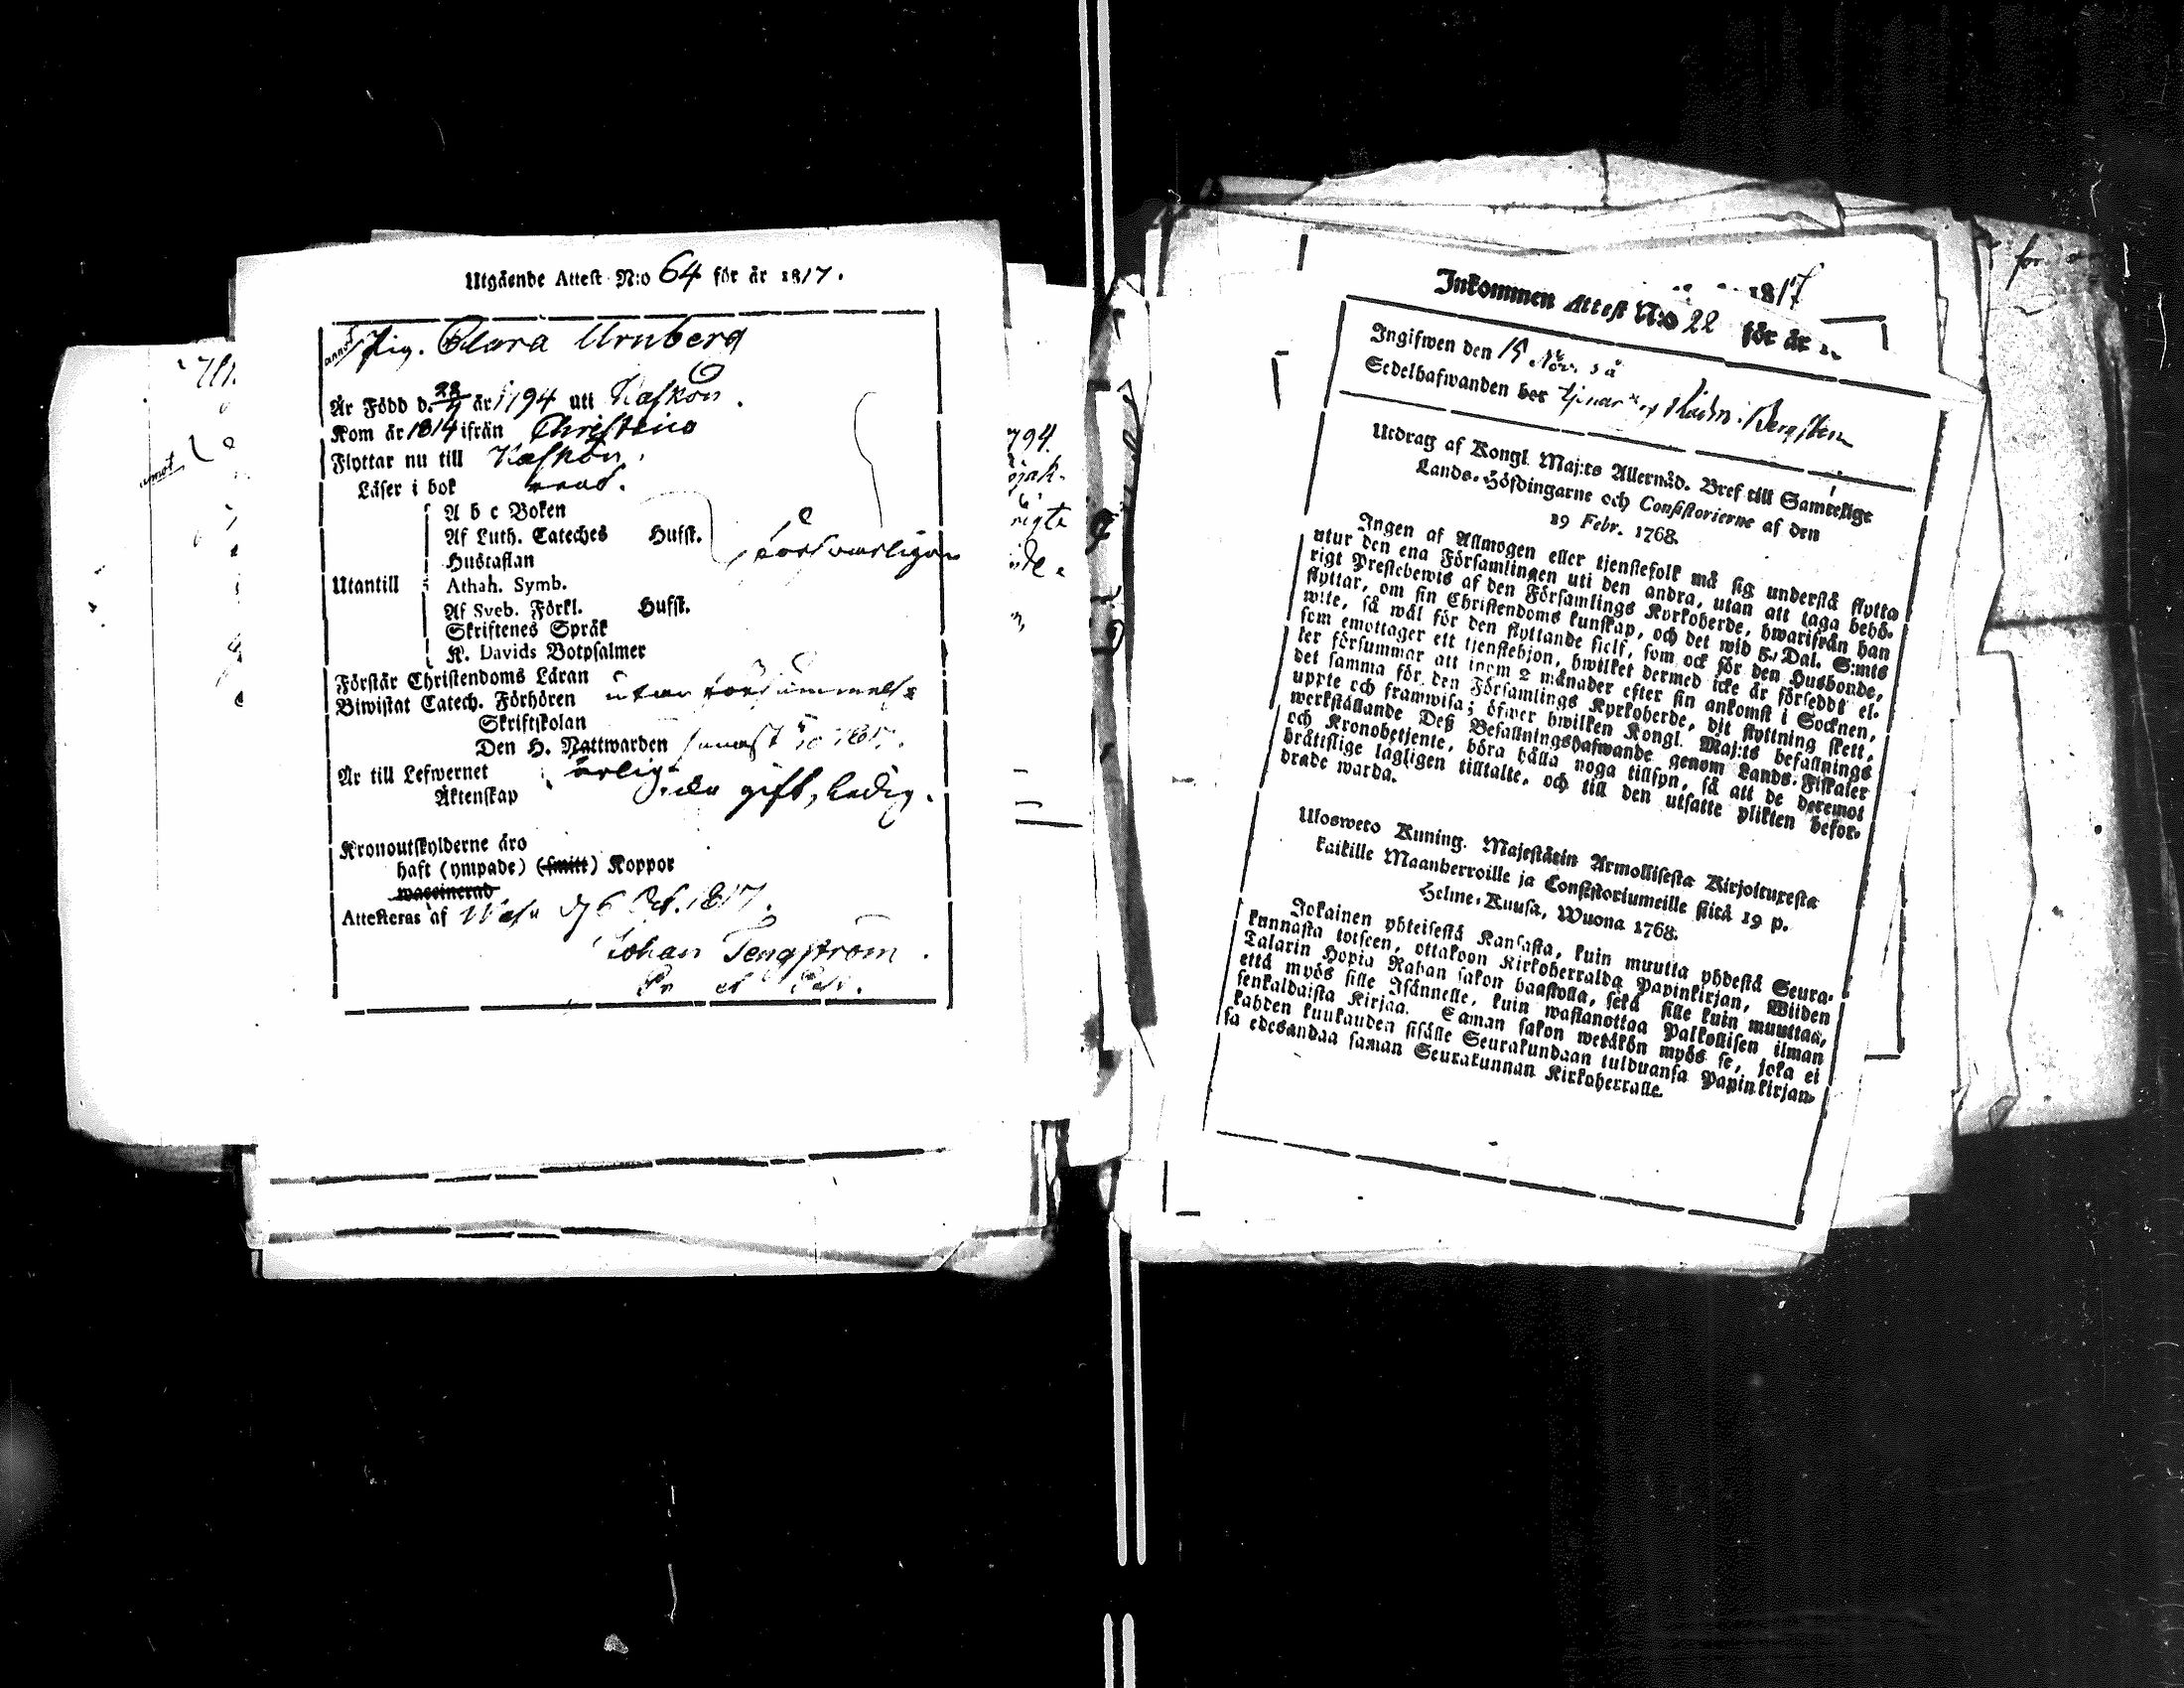 Utgående Attest N:o 64 för år 1817.
Pig. Clara Urnberg
Är Född d. 28/4 år 1794 uti Kaskön.
Kom år 1814 ifrån Christina
Flyttar nu till Kaskön.
Läser i bok
A b c Boken
Af Luth. Cateches Husft.
Hustaflan
försvarligen
Utantill
Athah. Symb.
Af Sveb. Förkl. Husft.
Skriftenes Språk
K. Davids Botpsalmer
Förstår Christendoms Läran
Biwistat Catech. Förhören utan försummelse
Skriftskolan
Den H. Nattwarden senast
Är till Lefwernet ärlig
Äktenskap gift, ledig.
Kronoutskylderne äro
haft (ympade) (smitt) Koppor
waccinerad
Attesteras af Wasa d 6 Oct. 1817.
Johan Tengström.
794.
Inkommen Attest N:o 22 för år 1817
Ingifwen den 15 Nov.
Sedelhafwanden bor tjenar Bergsten
Utdrag af Kongl. Maj:ts Allernåd. Bref till Samtelige
Lands-Höfdingarne och Consistorierne af den
19 Febr. 1768.
Ingen af Allmogen eller tjenstefolk må sig understå flytta
utur den ena Församlingen uti den andra, utan att taga behö-
rigt Prestebewis af den Församlings Kyrkoherde, hwarifrån han
flyttar, om sin Christendoms kunskap, och det wid 5. Dal. S:mts
wite, så wäl för den flyttande sielf, som ock för den Husbonde,
som emottager ett tjenstehjon, hwilket dermed icke är försedt el-
ler försummar att inom 2 månader efter sin ankomst i Socknen,
det samma för den Församlings Kyrkoherde, dit flyttning skett,
uppte och framwisa; öfwer hwilken Kongl. Maj:ts befallnings
werkställande Deß Befallningshafwande genom Lands-Fiskaler
och Kronobetjente, böra hålla noga tillsyn, så att de deremot
bråttslige lagligen tilltalte, och till den utsatte plikten befor-
drade warda.
Uloswето Kuning. Majestätin Armollisesta Kirjoituxesta
kaikille Maanherroille ja Consistoriumeille siitä 19 p.
Helme-Kuusa, Wuona 1768.
Jokainen yhteisestä Kansasta, kuin muutta yhdestä Seura-
kunnasta toiseen, ottakoon Kirkoherralda Papinkirjan, Wiiden
Talarin Hopia Rahan sakon haastolla, sekä sille kuin muuttaa,
että myös sille Isännelle, kuin wastanottaa Palkollisen ilman
senkaldaista Kirjaa. Saman sakon wetäkön myös se, joka ei
kahden kuukauden sisälle Seurakundaan tulduansa Papinkirjan-
sa edesandaa saman Seurakunnan Kirkoherralle.